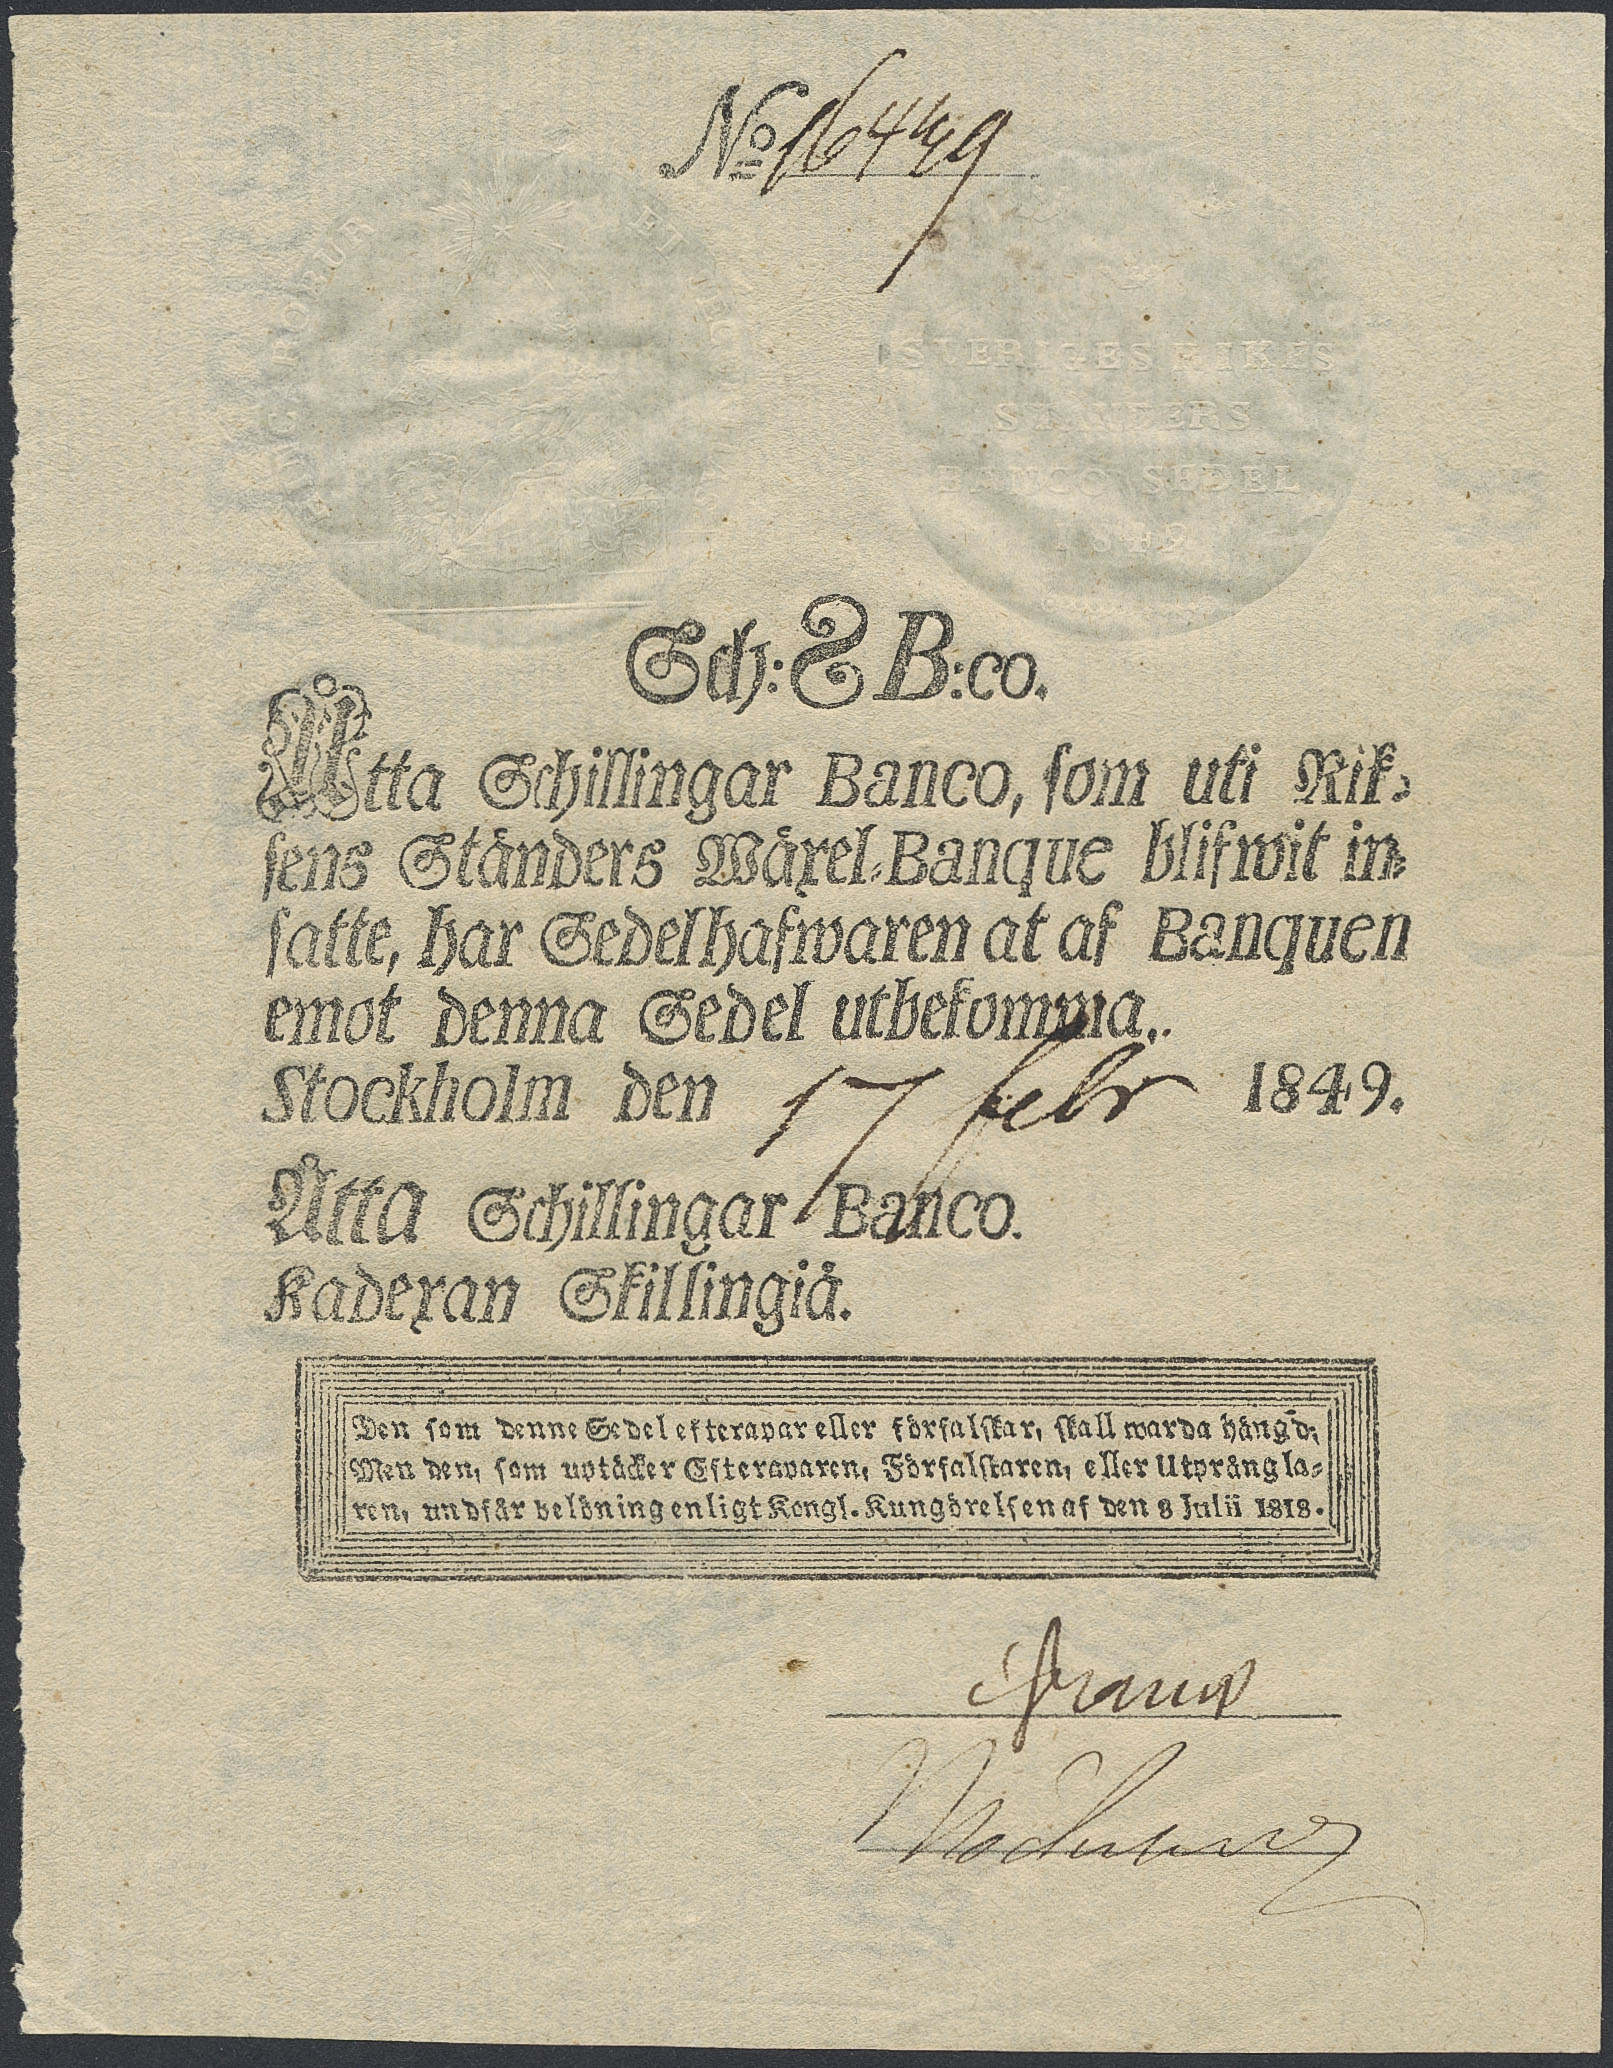 No 16449
HINC ROBUR ET
SVERIGES RIKES
STÄNDERS
BANCO SEDEL
1849
Sch: 8 B:co.
Åtta Schillingar Banco, som uti Rik-
sens Ständers Wäxel-Banque blifwit in-
satte, har Sedelhafwaren at af Banquen
emot denna Sedel utbekomma.
Stockholm den 17 febr 1849.
Åtta Schillingar Banco.
Kadexan Skillingiä.
Den som denne Sedel efterapar eller förfalskar, skall warda hängd;
Men den, som uptäcker Efteraparen, Förfalskaren, eller Utprångla-
ren, undfår belöning enligt Kongl. Kungörelsen af den 8 Julii 1818.